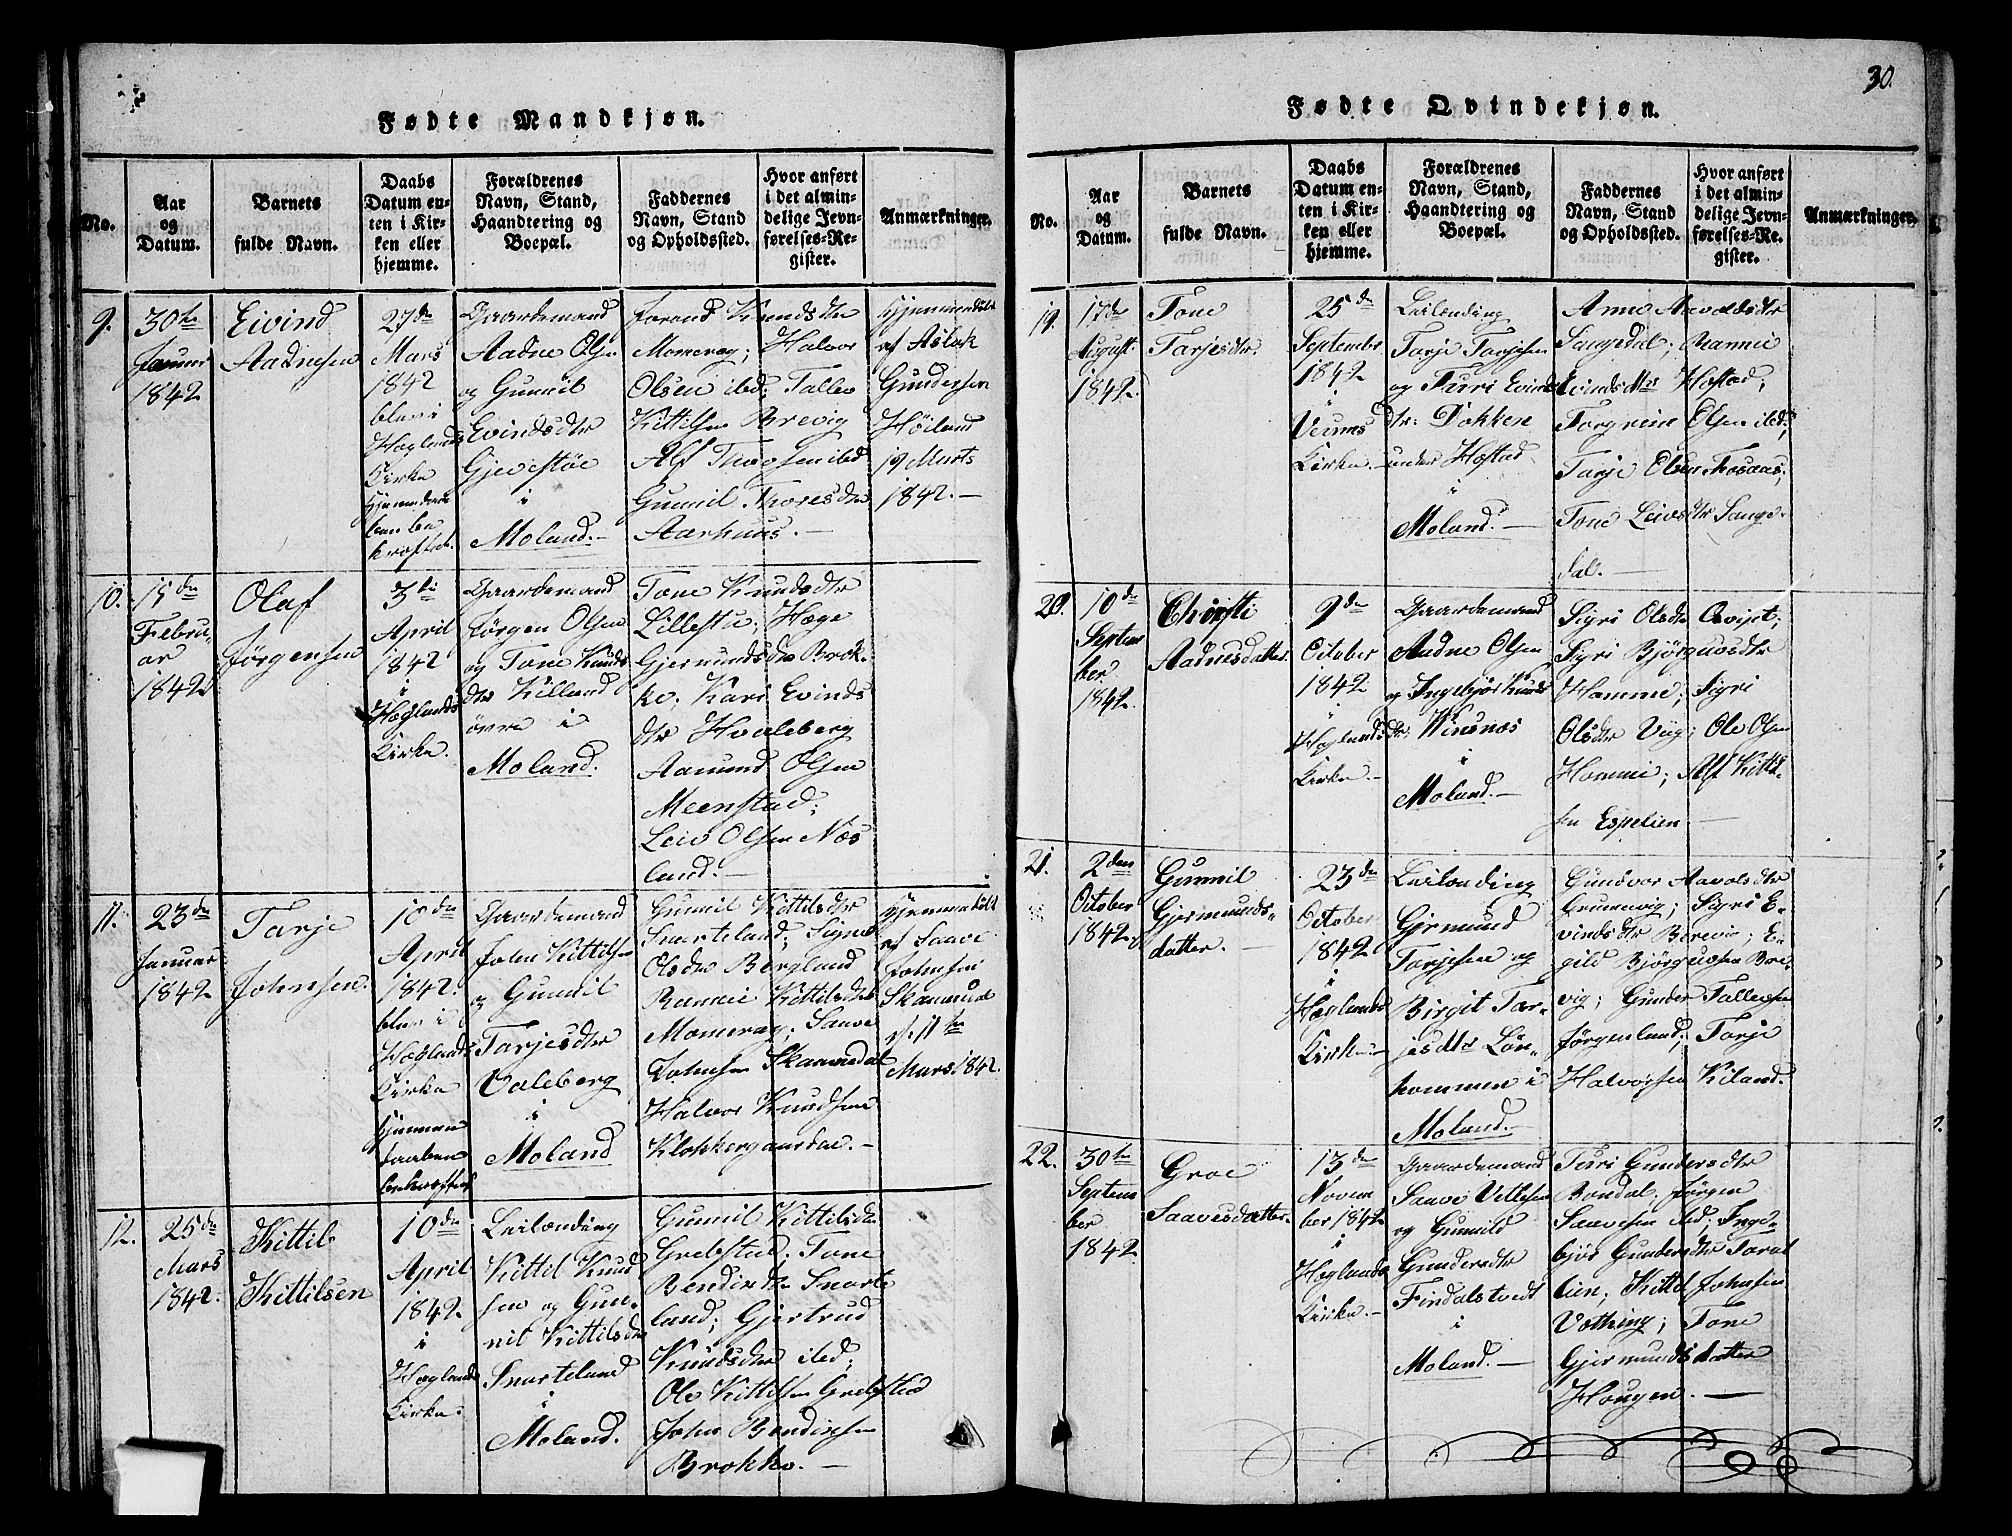 Fødte Mandkjøn.
No.
Aar
og
Datum.
Barnets
fulde Navn.
Daabs
Datum en-
ten i Kir-
ken eller
hjemme.
Forældrenes
Navn, Stand,
Haandtering og
Boepæl.
Faddernes
Navn, Stand
og Opholdssted.
Hvor anført
i det almin-
delige Jevn-
førelses-Re-
gister.
Anmærkninger.
9.
30te
Januar
1842
Eivind
Aadnesen
27de
Mars
1842
blev i
Hoglands
Kirke
Hjemmedaa-
ben be
kræftet.
Gaardemand
Aadne Olsen
og Gunnil
Evindsdtr
Gjevestøe
i
Moland.
Jorand Knudsdtr
Momrag; Halvor
Olsen ibd; Tallev
Kittilsen Brevig
Alf Thorsen ibd
Gunnil Thoresdtr
Aarhuus.
Hjemmedøbt
af Aslak
Gundersen
Høiland
19 Marts
1842.
10.
15de
Febru-
ar
1842
Olaf
Jørgensen
3die
April
1842
i
Hoglands
Kirke.
Gaardemand
Jørgen Olsen
og Tone Knuds
dtr Killand
øvre i
Moland.
Tone Knudsdtr
Lillestu; Hæge
Gjermundsdtr Brok-
ke; Kari Evinds
dtr Hvaleberg
Aamund Olsen
Meenstad;
Leiv Olsen Næs
land.
11.
23de
Januar
1842
Tarje
Johnsen.
10de
April
1842.
blev i
Hoglands
Kirke
Hjemme
daaben
bekræftet
Gaardemand
John Kittilsen
og Gunnil
Tarjesdtr
Valeberg
i
Moland
Gunnil Kittilsdtr
Snarteland; Signe
Olsdtr Bergland
Rannei Kittilsdtr
Momrag; Saave
Johnsen Skaamedal
Halvor Knudsen
Klokkergaarden.
Hjemmedøbt
af Saave
Johnsen
Skaamedal
1te
Mars 1842.
12.
25de
Mars
1842.
Kittil
Kittilsen
10de
April
1842
i
Hoglands
Kirke.
Leilænding
Kittil Knud
sen og Gun-
nil Kittilsdtr
Snarteland
i
Moland.
Gunnil Kittilsdtr
Grebstad; Tone
Bendixdtr Snarte
land; Gjertrud
Knudsdtr ibd;
Ole Kittilsen Grebstad
John Bendixsen
Brokke.
30.
Fødte Qvindekjøn.
No.
Aar
og
Datum.
Barnets
fulde Navn.
Daabs
Datum en-
ten i Kir-
ken eller
hjemme.
Forældrenes
Navn, Stand,
Haandtering og
Boepæl.
Faddernes
Navn, Stand
og Opholdssted.
Hvor anført
i det almin-
delige Jevn-
førelses-Re-
gister.
Anmærkninger.
19.
17de
August
1842.
Tone
Tarjesdtr.
25de
September
1842
i
Veums
Kirke.
Leilænding
Tarje Tarjesen
og Turi Evinds
dtr: Dokken
under Hostad
i
Moland.
Anne Aavoldsdtr
Sangedal; Rannei
Evindsdtr Hostad;
Torgrim Olsen ibd;
Tarje Olsen Aasaas;
Tone Leivsdtr Sange-
dal.
20.
10de
Septem
ber
1842.
Christi
Aadnesdatter
9de
October
1842
i
Hoglands
Kirke.
Gaardemand
Aadne Olsen
og Ingebjør Knuds
dtr: Winsnæs
i
Moland.
Sigri Olsdtr Qvist;
Sigri Bjørguvsdtr
Homme; Sigri
Olsdtr Viig; Ole Olsen
Homme; Alf Kittil-
sen Espelien.
21.
2den
October
1842.
Gunnil
Gjermunds-
datter.
23de
October
1842
i
Hoglands
Kirke
Leilænding
Gjermund
Tarjesen og
Birgit Tar-
jesdtr Løn-
kommen i
Moland.
Gundvor Aavolsdtr
Grunnvig; Sigri E-
vindsdtr Brevig; E-
gild Bjørguvsen Bre-
vig; Gunder Tallevsen
Jørgenland; Tarje
Halvorsen Kiland.
22.
30te
Septem
ber
1842
Groe
Saavesdatter.
13de
Novem
ber 1842
i
Hoglands
Kirke.
Gaardemand
Saave Vetlesen
og Gunnild
Gundersdtr
Findalstvedt
i
Moland.
Turi Gundersdtr
Bondal; Jørgen
Saavesen ibd; Inge-
bjør Gundersdtr Toral
lien; Kittil Johnsen
Vothing; Tone
Gjermundsdatter
Hougen.